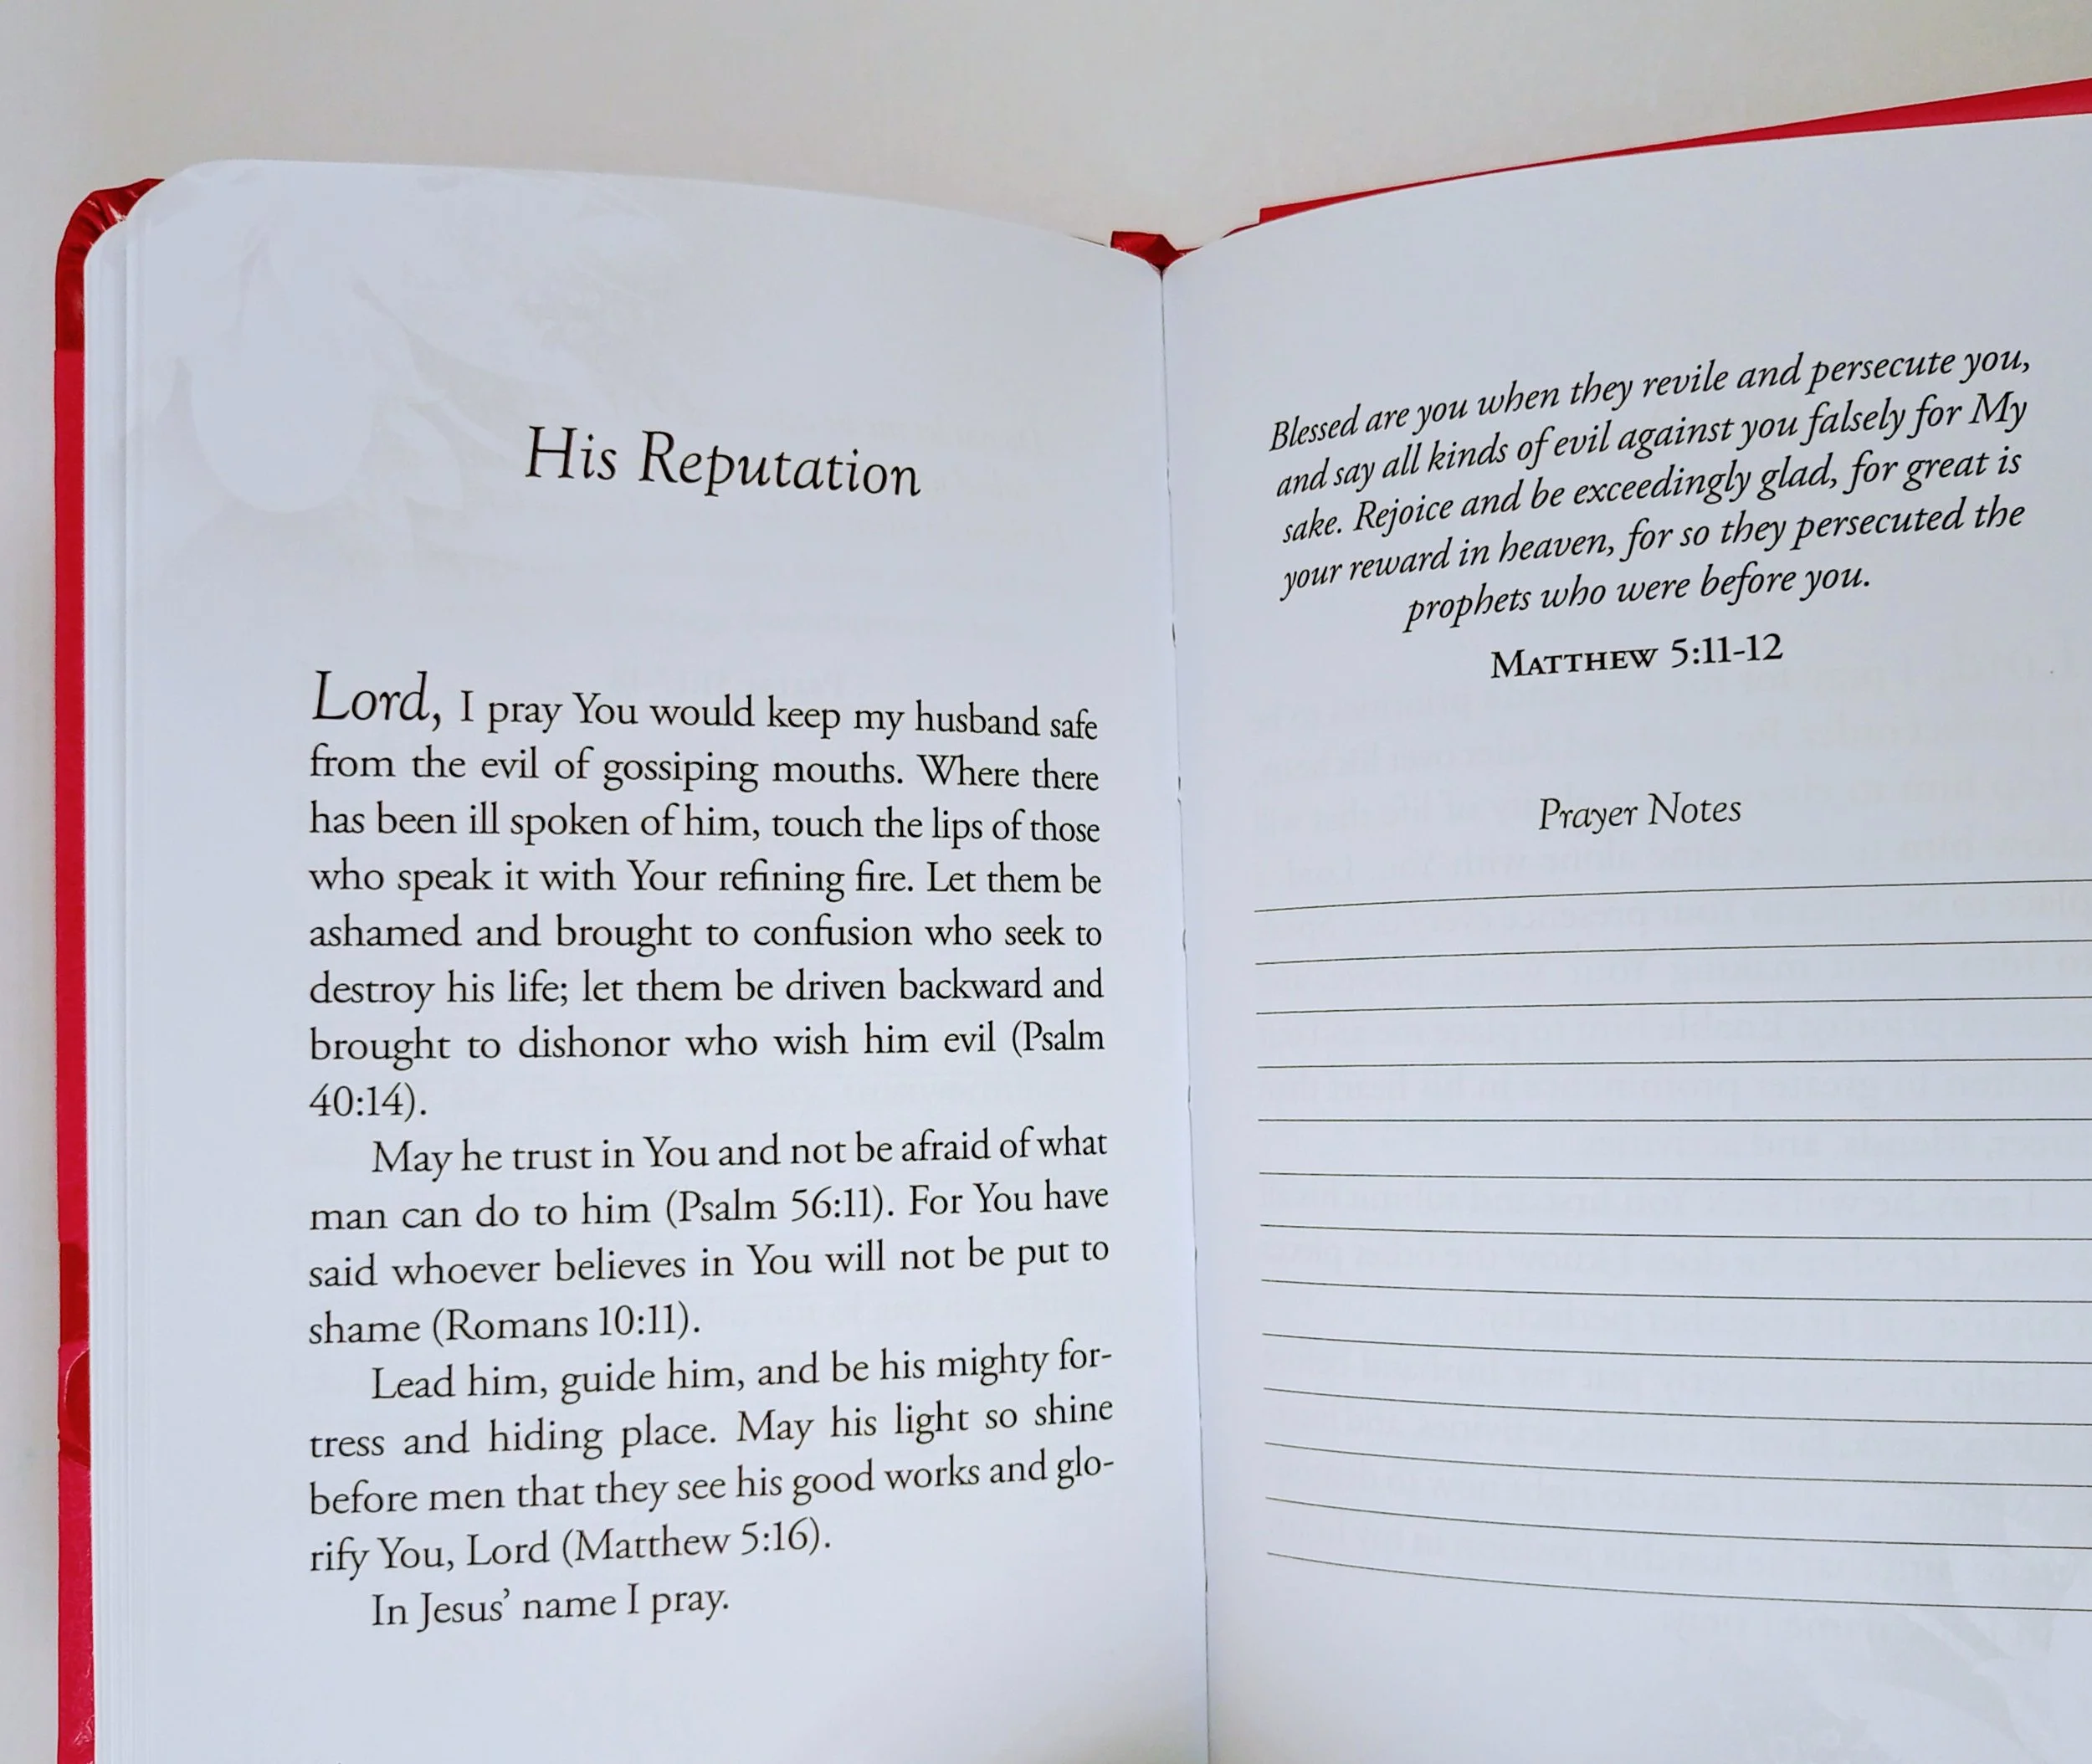 His Reputation
Lord, I pray You would keep my husband safe
from the evil of gossiping mouths. Where there
has been ill spoken of him, touch the lips of those
who speak it with Your refining fire. Let them be
ashamed and brought to confusion who seek to
destroy his life; let them be driven backward and
brought to dishonor who wish him evil (Psalm
40:14).
May he trust in You and not be afraid of what
man can do to him (Psalm 56:11). For You have
said whoever believes in You will not be put to
shame (Romans 10:11).
Lead him, guide him, and be his mighty for-
tress and hiding place. May his light so shine
before men that they see his good works and glo-
rify You, Lord (Matthew 5:16).
In Jesus’ name I pray.
Blessed are you when they revile and persecute you,
and say all kinds of evil against you falsely for My
sake. Rejoice and be exceedingly glad, for great is
your reward in heaven, for so they persecuted the
prophets who were before you.
MATTHEW 5:11-12
Prayer Notes